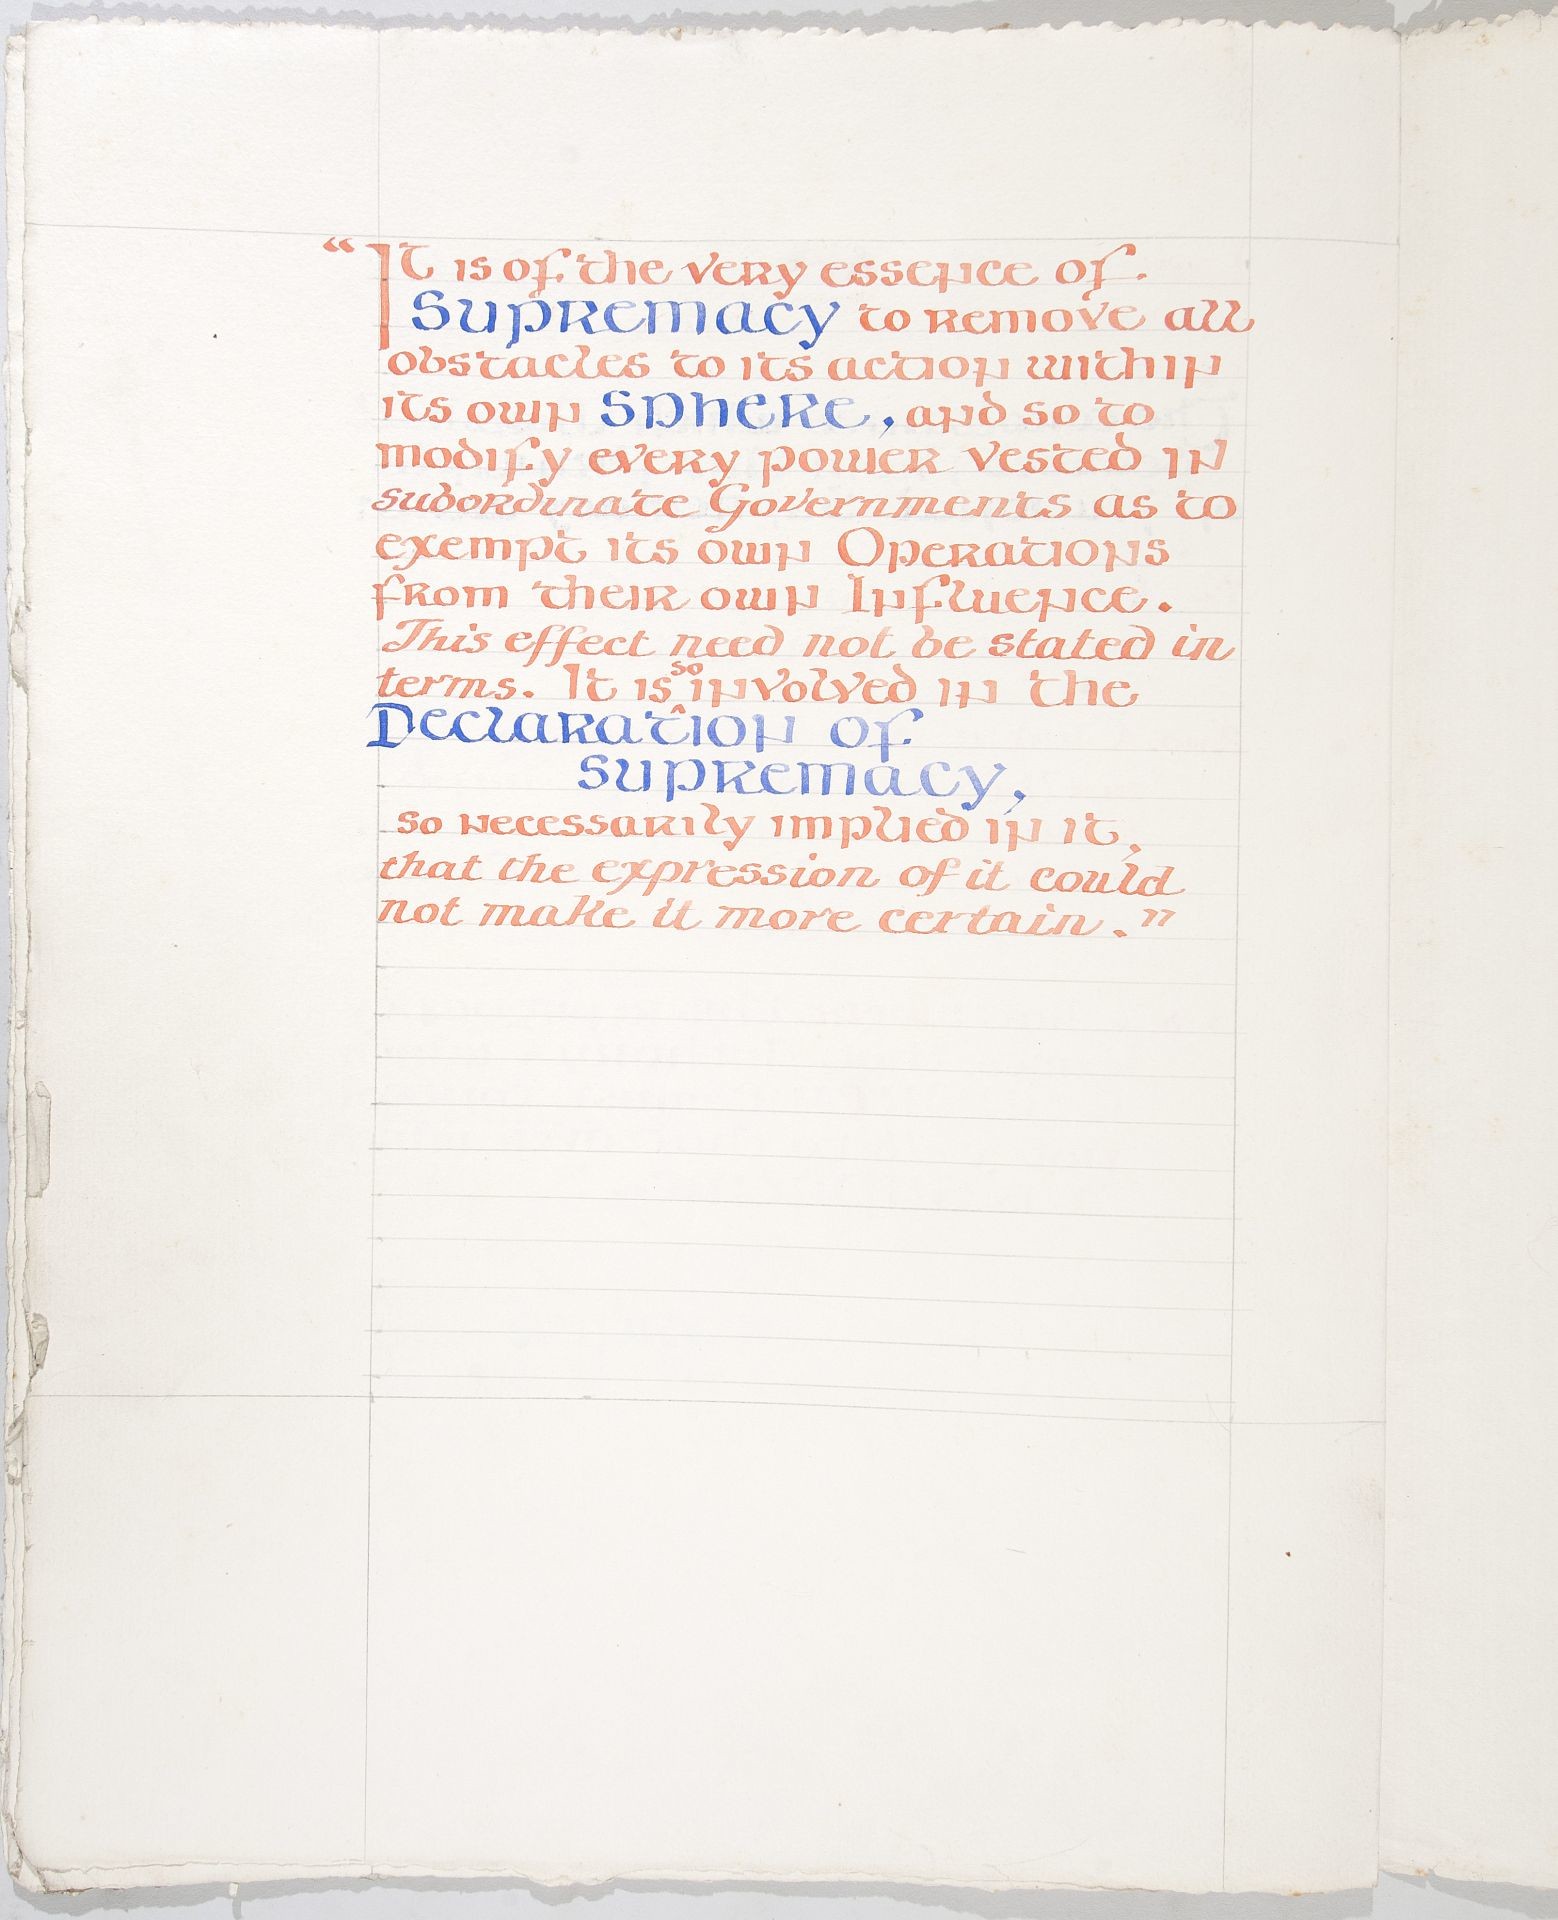 “It is of the very essence of
Supremacy to remove all
obstacles to its action within
its own Sphere, and so to
modify every power vested in
subordinate Governments as to
exempt its own Operations
from their own Influence.
This effect need not be stated in
terms. It is so involved in the
Declaration of
Supremacy,
so necessarily implied in it,
that the expression of it could
not make it more certain.”